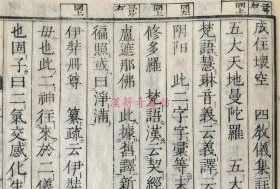 成住壞空 四教儀集
五大天地曼陀羅 五
梵語慧琳音義云義譯
陰陽 此二子字彙等本
修多羅 梵語漢云契經
盧遮那佛 此據舊譯新云
徧照或曰淨滿
伊弉冊尊 纂疏云伊弉
毋也此二神往來於二儀
也固子曰二氣交感化生